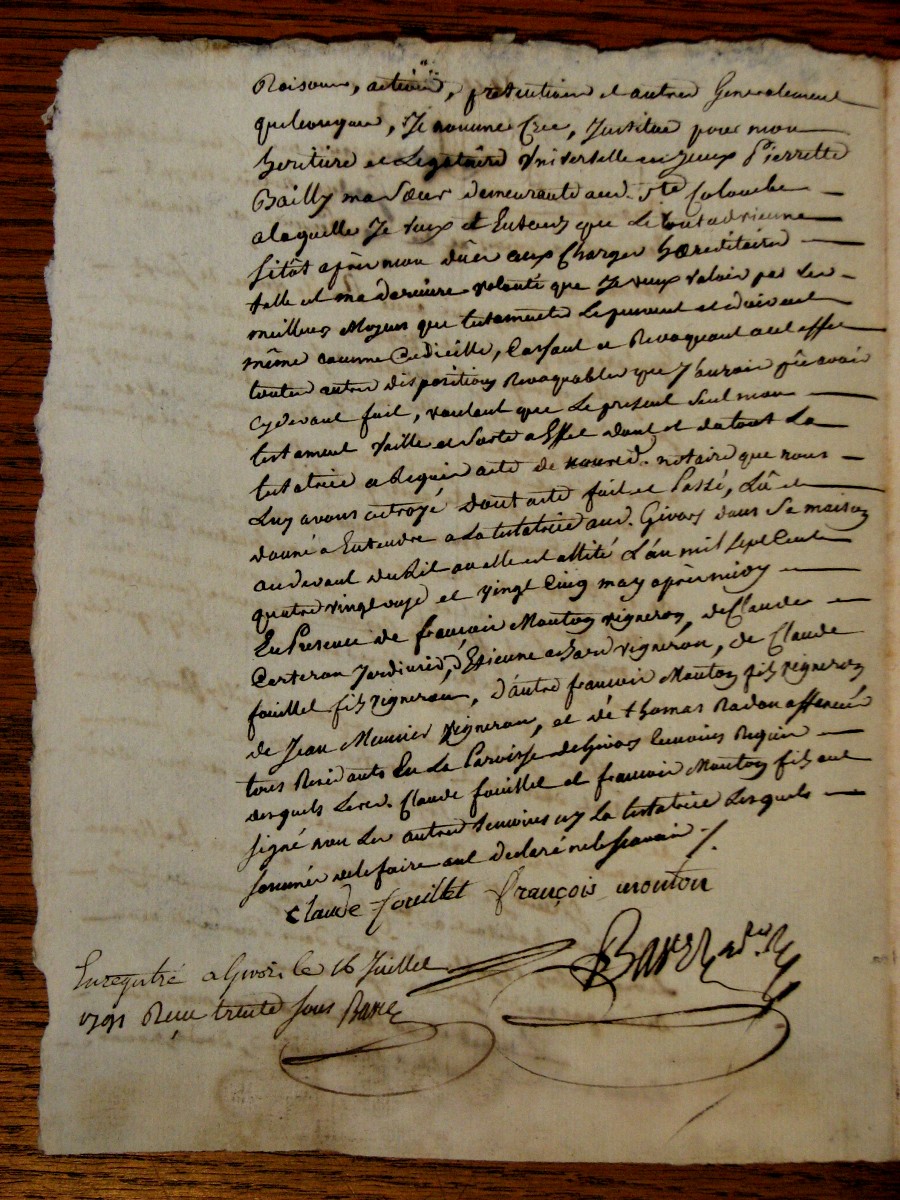 Raisons, actions, pretentions et autres Generalement
quelconques, Je nomme Cree, Institue pour mon
heritiere et Legataire Universelle en Jceux Pierrette
Bailly ma Sœur demeurante aud. Ste Colombe
a laquelle Je veux et Entends que Le tout advienne
sitôt après mon décès aux Charges hereditaires
telle est ma derniere volonté que Je veux valoir par Les
meilleurs Moyens que testaments Le peuvent et doivent
même comme Codicille, Cassant et Revoquant a cet effet
toutes autres dispositions Revoquables que J'aurais pû avoir
cy devant fait, voulant que Le présent Seul mon
testament vaille et Sorte a Effet dont et du tout La
testatrice a Requis acte de nousd. notaire que nous
Luy avons octroyé dont acte fait et Passé, Lû et
donné a Entendre a La testatrice aud. Givors dans Sa maison
au devant du Lit ou elle est alité L'an mil sept Cent
quatre vingt onze et vingt Cinq may après midy
En Presence de françois Mouton vigneron, de Claude
Carteron Jardinier, d'Etienne achard vigneron, de Claude
fouillet fils vigneron, d'autre francois Mouton fils vigneron
de Jean Meunier vigneron, et de thomas Radou affaneur
tous Residants En La Paroisse de Givors temoins Requis
desquels Lesd. Claude fouillet et francois Mouton fils ont
signé non Les autres temoins ny La testatrice Lesquels
sommés de le faire ont declaré ne le scavoir ./.
claude fouillet françois mouton
Enregistré a Givors le 16 Juillet
1791 Reçu trente sous